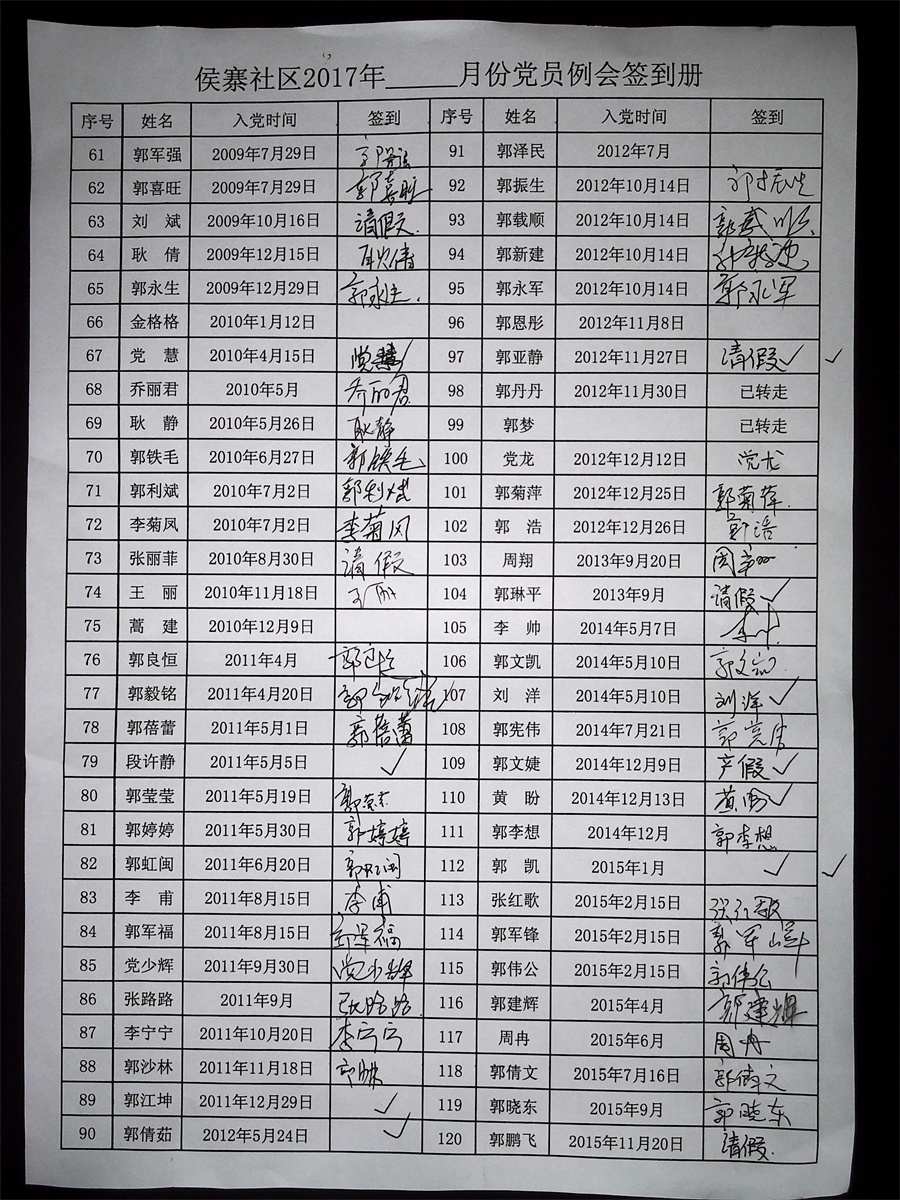 侯寨社区2017年_____月份党员例会签到册
序号 姓名 入党时间 签到 序号 姓名 入党时间 签到
61 郭军强 2009年7月29日 91 郭泽民 2012年7月
62 郭喜旺 2009年7月29日 郭喜旺 92 郭振生 2012年10月14日 郭振生
63 刘 斌 2009年10月16日 请假 93 郭载顺 2012年10月14日 郭载顺
64 耿 倩 2009年12月15日 耿倩 94 郭新建 2012年10月14日
65 郭永生 2009年12月29日 郭永生 95 郭永军 2012年10月14日 郭永军
66 金格格 2010年1月12日 96 郭恩彤 2012年11月8日
67 党 慧 2010年4月15日 党慧 97 郭亚静 2012年11月27日 请假✓ ✓
68 乔丽君 2010年5月 乔丽君 98 郭丹丹 2012年11月30日 已转走
69 耿 静 2010年5月26日 耿静 99 郭梦 已转走
70 郭铁毛 2010年6月27日 郭铁毛 100 党龙 2012年12月12日 党龙
71 郭利斌 2010年7月2日 郭利斌 101 郭菊萍 2012年12月25日 郭菊萍
72 李菊凤 2010年7月2日 李菊凤 102 郭 浩 2012年12月26日 郭浩
73 张丽菲 2010年8月30日 请假 103 周翔 2013年9月20日 周翔
74 王 丽 2010年11月18日 王丽 104 郭琳平 2013年9月 请假✓
75 蒿 建 2010年12月9日 105 李 帅 2014年5月7日 李帅
76 郭良恒 2011年4月 106 郭文凯 2014年5月10日 郭文凯
77 郭毅铭 2011年4月20日 107 刘 洋 2014年5月10日 刘洋✓
78 郭蓓蕾 2011年5月1日 郭蓓蕾 108 郭宪伟 2014年7月21日
79 段许静 2011年5月5日 ✓ 109 郭文婕 2014年12月9日 产假✓
80 郭莹莹 2011年5月19日 郭莹莹 110 黄 盼 2014年12月13日 黄盼✓
81 郭婷婷 2011年5月30日 郭婷婷 111 郭李想 2014年12月 郭李想
82 郭虹闽 2011年6月20日 郭虹闽 112 郭 凯 2015年1月 ✓ ✓
83 李 甫 2011年8月15日 李甫 113 张红歌 2015年2月15日 张红歌
84 郭军福 2011年8月15日 郭军福 114 郭军锋 2015年2月15日
85 党少辉 2011年9月30日 党少辉 115 郭伟公 2015年2月15日 郭伟公
86 张路路 2011年9月 张路路 116 郭建辉 2015年4月 郭建辉
87 李宁宁 2011年10月20日 李宁宁 117 周冉 2015年6月 周冉
88 郭沙林 2011年11月18日 118 郭倩文 2015年7月16日 郭倩文
89 郭江坤 2011年12月29日 ✓ 119 郭晓东 2015年9月 郭晓东
90 郭倩茹 2012年5月24日 ✓ 120 郭鹏飞 2015年11月20日 请假